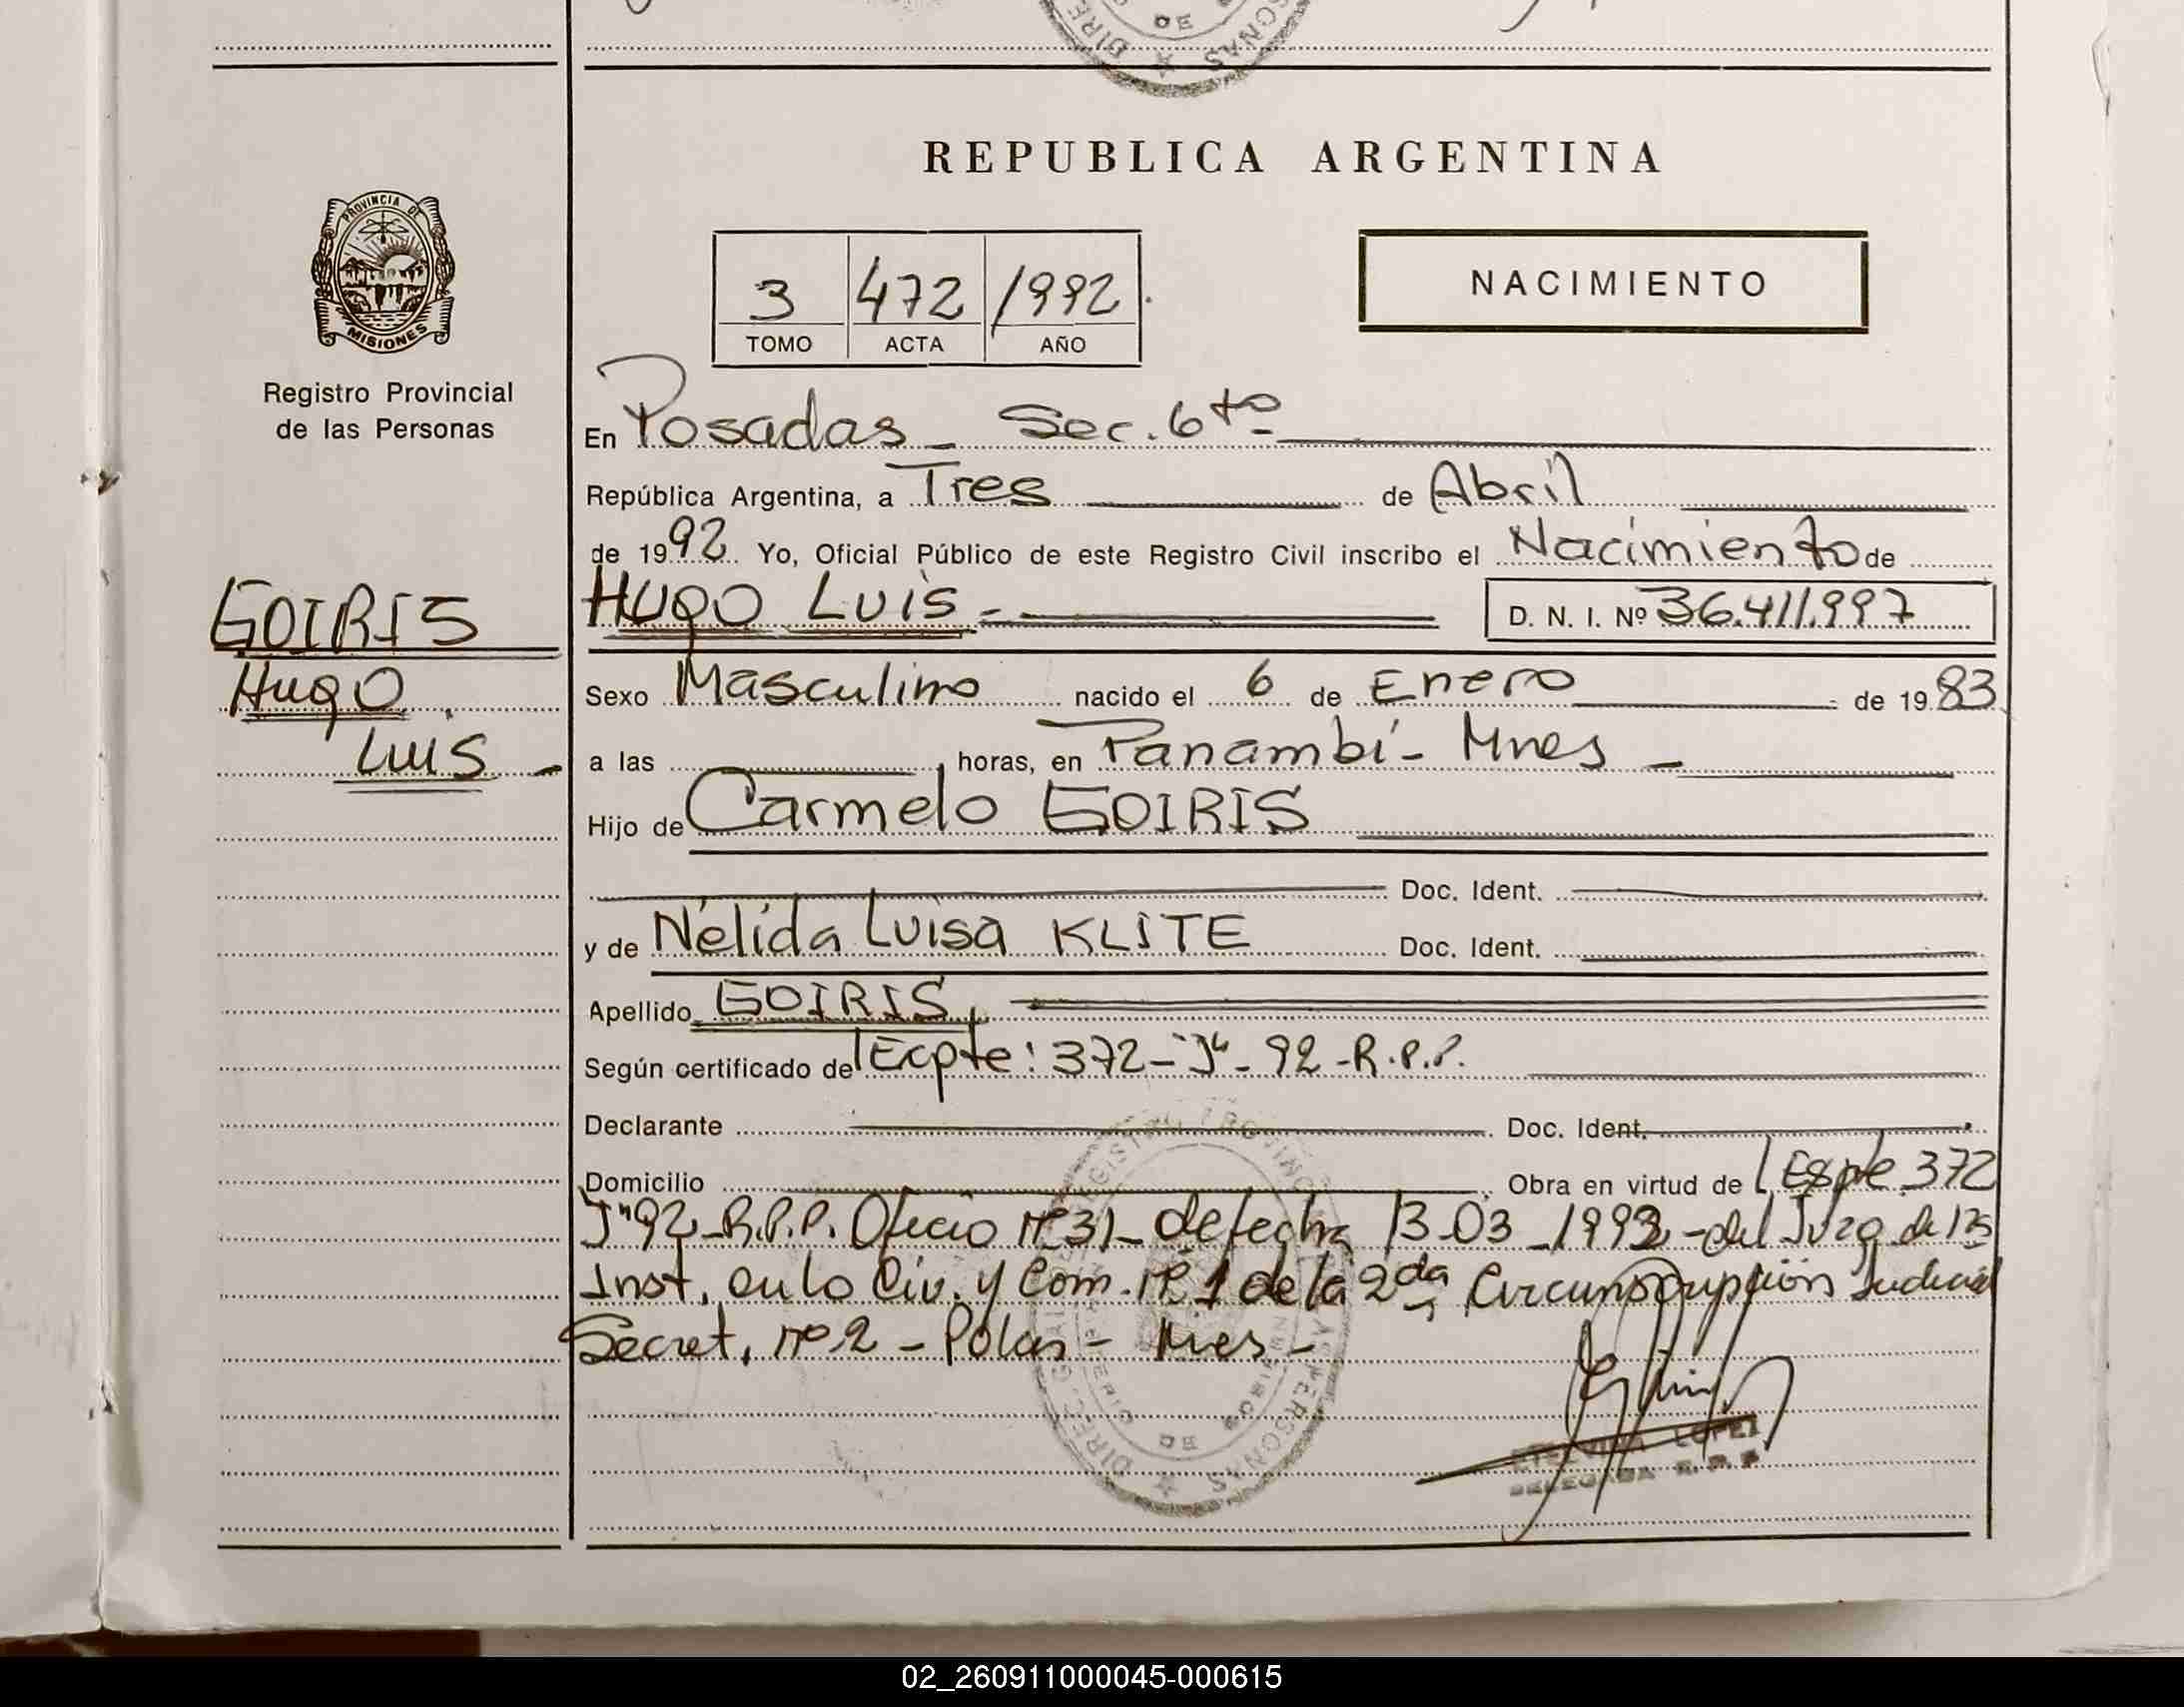 REPUBLICA ARGENTINA
PROVINCIA DE
MISIONES
Registro Provincial
de las Personas
GOIRIS
Hugo
Luis -
3 472 1992
TOMO ACTA AÑO
NACIMIENTO
En Posadas - Sec. 6to
República Argentina, a Tres de Abril
de 1992 Yo, Oficial Público de este Registro Civil inscribo el Nacimiento de
HUGO LUIS - D. N. I. Nº 36.411.997
Sexo Masculino nacido el 6 de Enero de 1983
a las horas, en Panambí - Mnes -
Hijo de Carmelo GOIRIS
Doc. Ident.
y de Nélida Luisa KLITE Doc. Ident.
Apellido GOIRIS
Según certificado de Expte: 372-"J"-92-R.P.P.
Declarante Doc. Ident.
Domicilio Obra en virtud de Expte 372
J"92-R.P.P. Oficio Nº 31- de fecha 13-03-1992 - del Juzg. de 1ª
Inst. en lo Civ. y Com. Nº 1 de la 2da Circunscripción Judicial
Secret. Nº 2 - - Mnes -
LOPEZ
DELEGADA R.P.P.
02_260911000045-000615